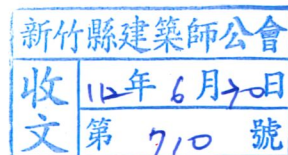 新竹縣建築師公會
收文
112年6月20日
第 710 號